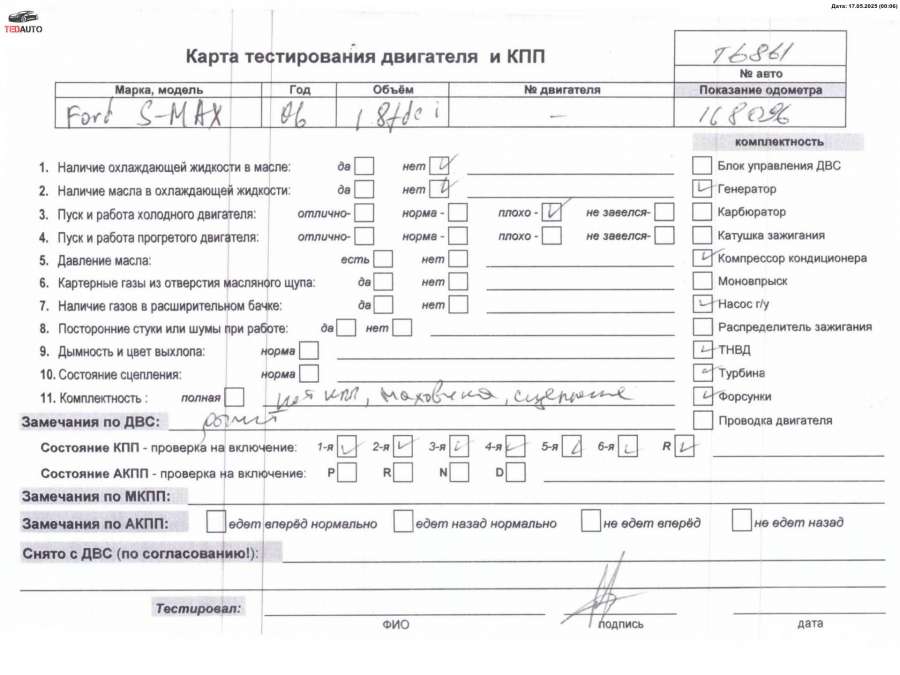 Дата: 17.05.2025 (00:06)
TEDAUTO
Карта тестирования двигателя и КПП
T6861
№ авто
Марка, модель Год Объём № двигателя Показание одометра
Ford S-MAX 06 1.8tdci — 168096
комплектность
1. Наличие охлаждающей жидкости в масле: да нет
Блок управления ДВС
2. Наличие масла в охлаждающей жидкости: да нет
Генератор
3. Пуск и работа холодного двигателя: отлично- норма - плохо - не завелся-
Карбюратор
4. Пуск и работа прогретого двигателя: отлично- норма - плохо - не завелся-
Катушка зажигания
5. Давление масла: есть нет
Компрессор кондиционера
6. Картерные газы из отверстия масляного щупа: да нет
Моновпрыск
7. Наличие газов в расширительном бачке: да нет
Насос г/у
8. Посторонние стуки или шумы при работе: да нет
Распределитель зажигания
9. Дымность и цвет выхлопа: норма
ТНВД
10. Состояние сцепления: норма
Турбина
11. Комплектность : полная нет КПП, маховика, сцепление
Форсунки
Замечания по ДВС:
Проводка двигателя
Состояние КПП - проверка на включение: 1-я 2-я 3-я 4-я 5-я 6-я R
Состояние АКПП - проверка на включение: P R N D
Замечания по МКПП:
Замечания по АКПП: едет вперёд нормально едет назад нормально не едет вперёд не едет назад
Снято с ДВС (по согласованию!):
Тестировал:
ФИО подпись дата